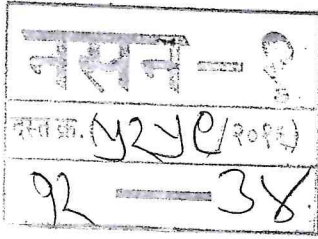 नसन - १
दस्त क्र. (५२५९/२०१६)
१२ — ३४